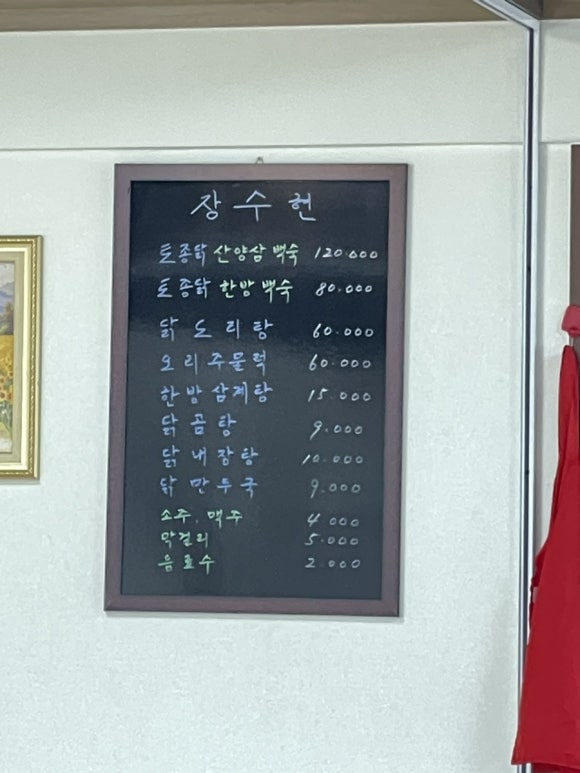 장수헌
토종닭 산양삼 백숙 120.000
토종닭 한방 백숙 80.000
닭도리탕 60.000
오리주물럭 60.000
한방삼계탕 15.000
닭곰탕 9.000
닭내장탕 10.000
닭만두국 9.000
소주, 맥주 4.000
막걸리 5.000
음료수 2.000